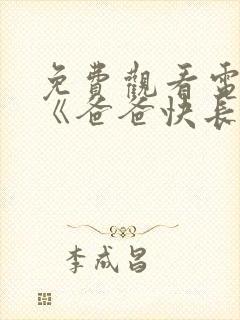 免費觀看電
《爸爸快長
李成昌